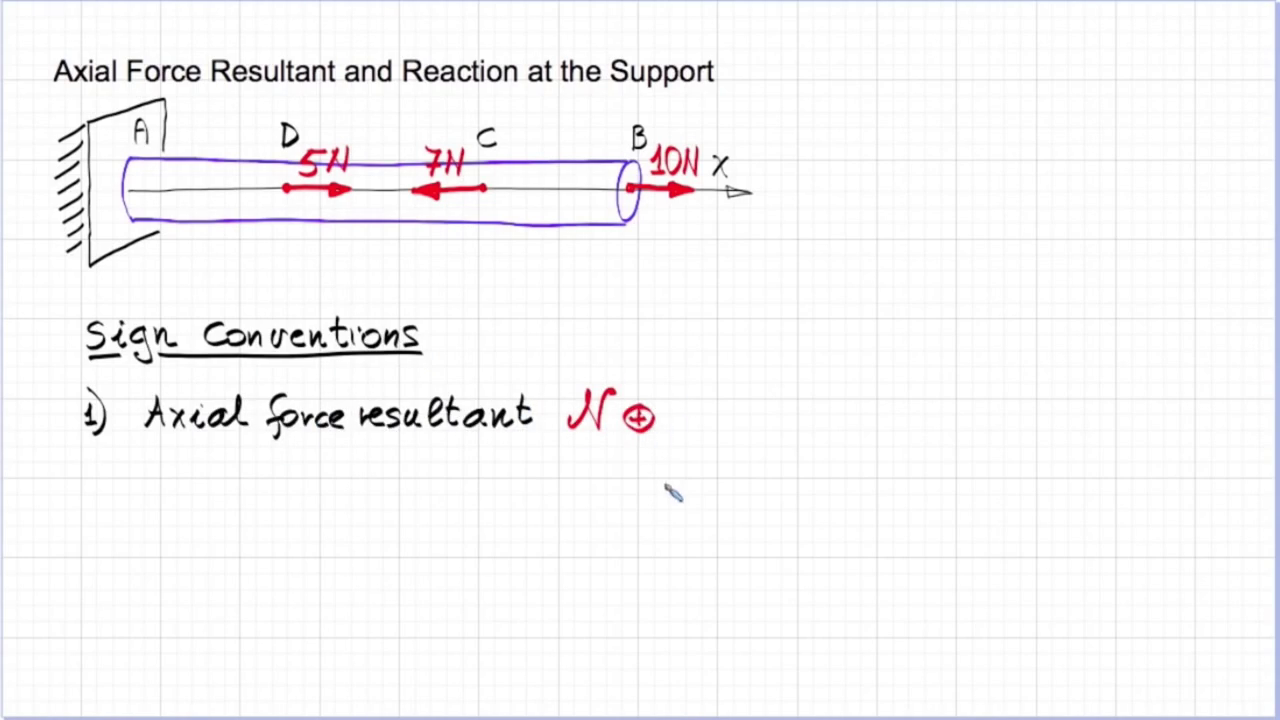 Axial Force Resultant and Reaction at the Support
A D C B
5N 7N 10N X
Sign Conventions
1) Axial force resultant N ⊕